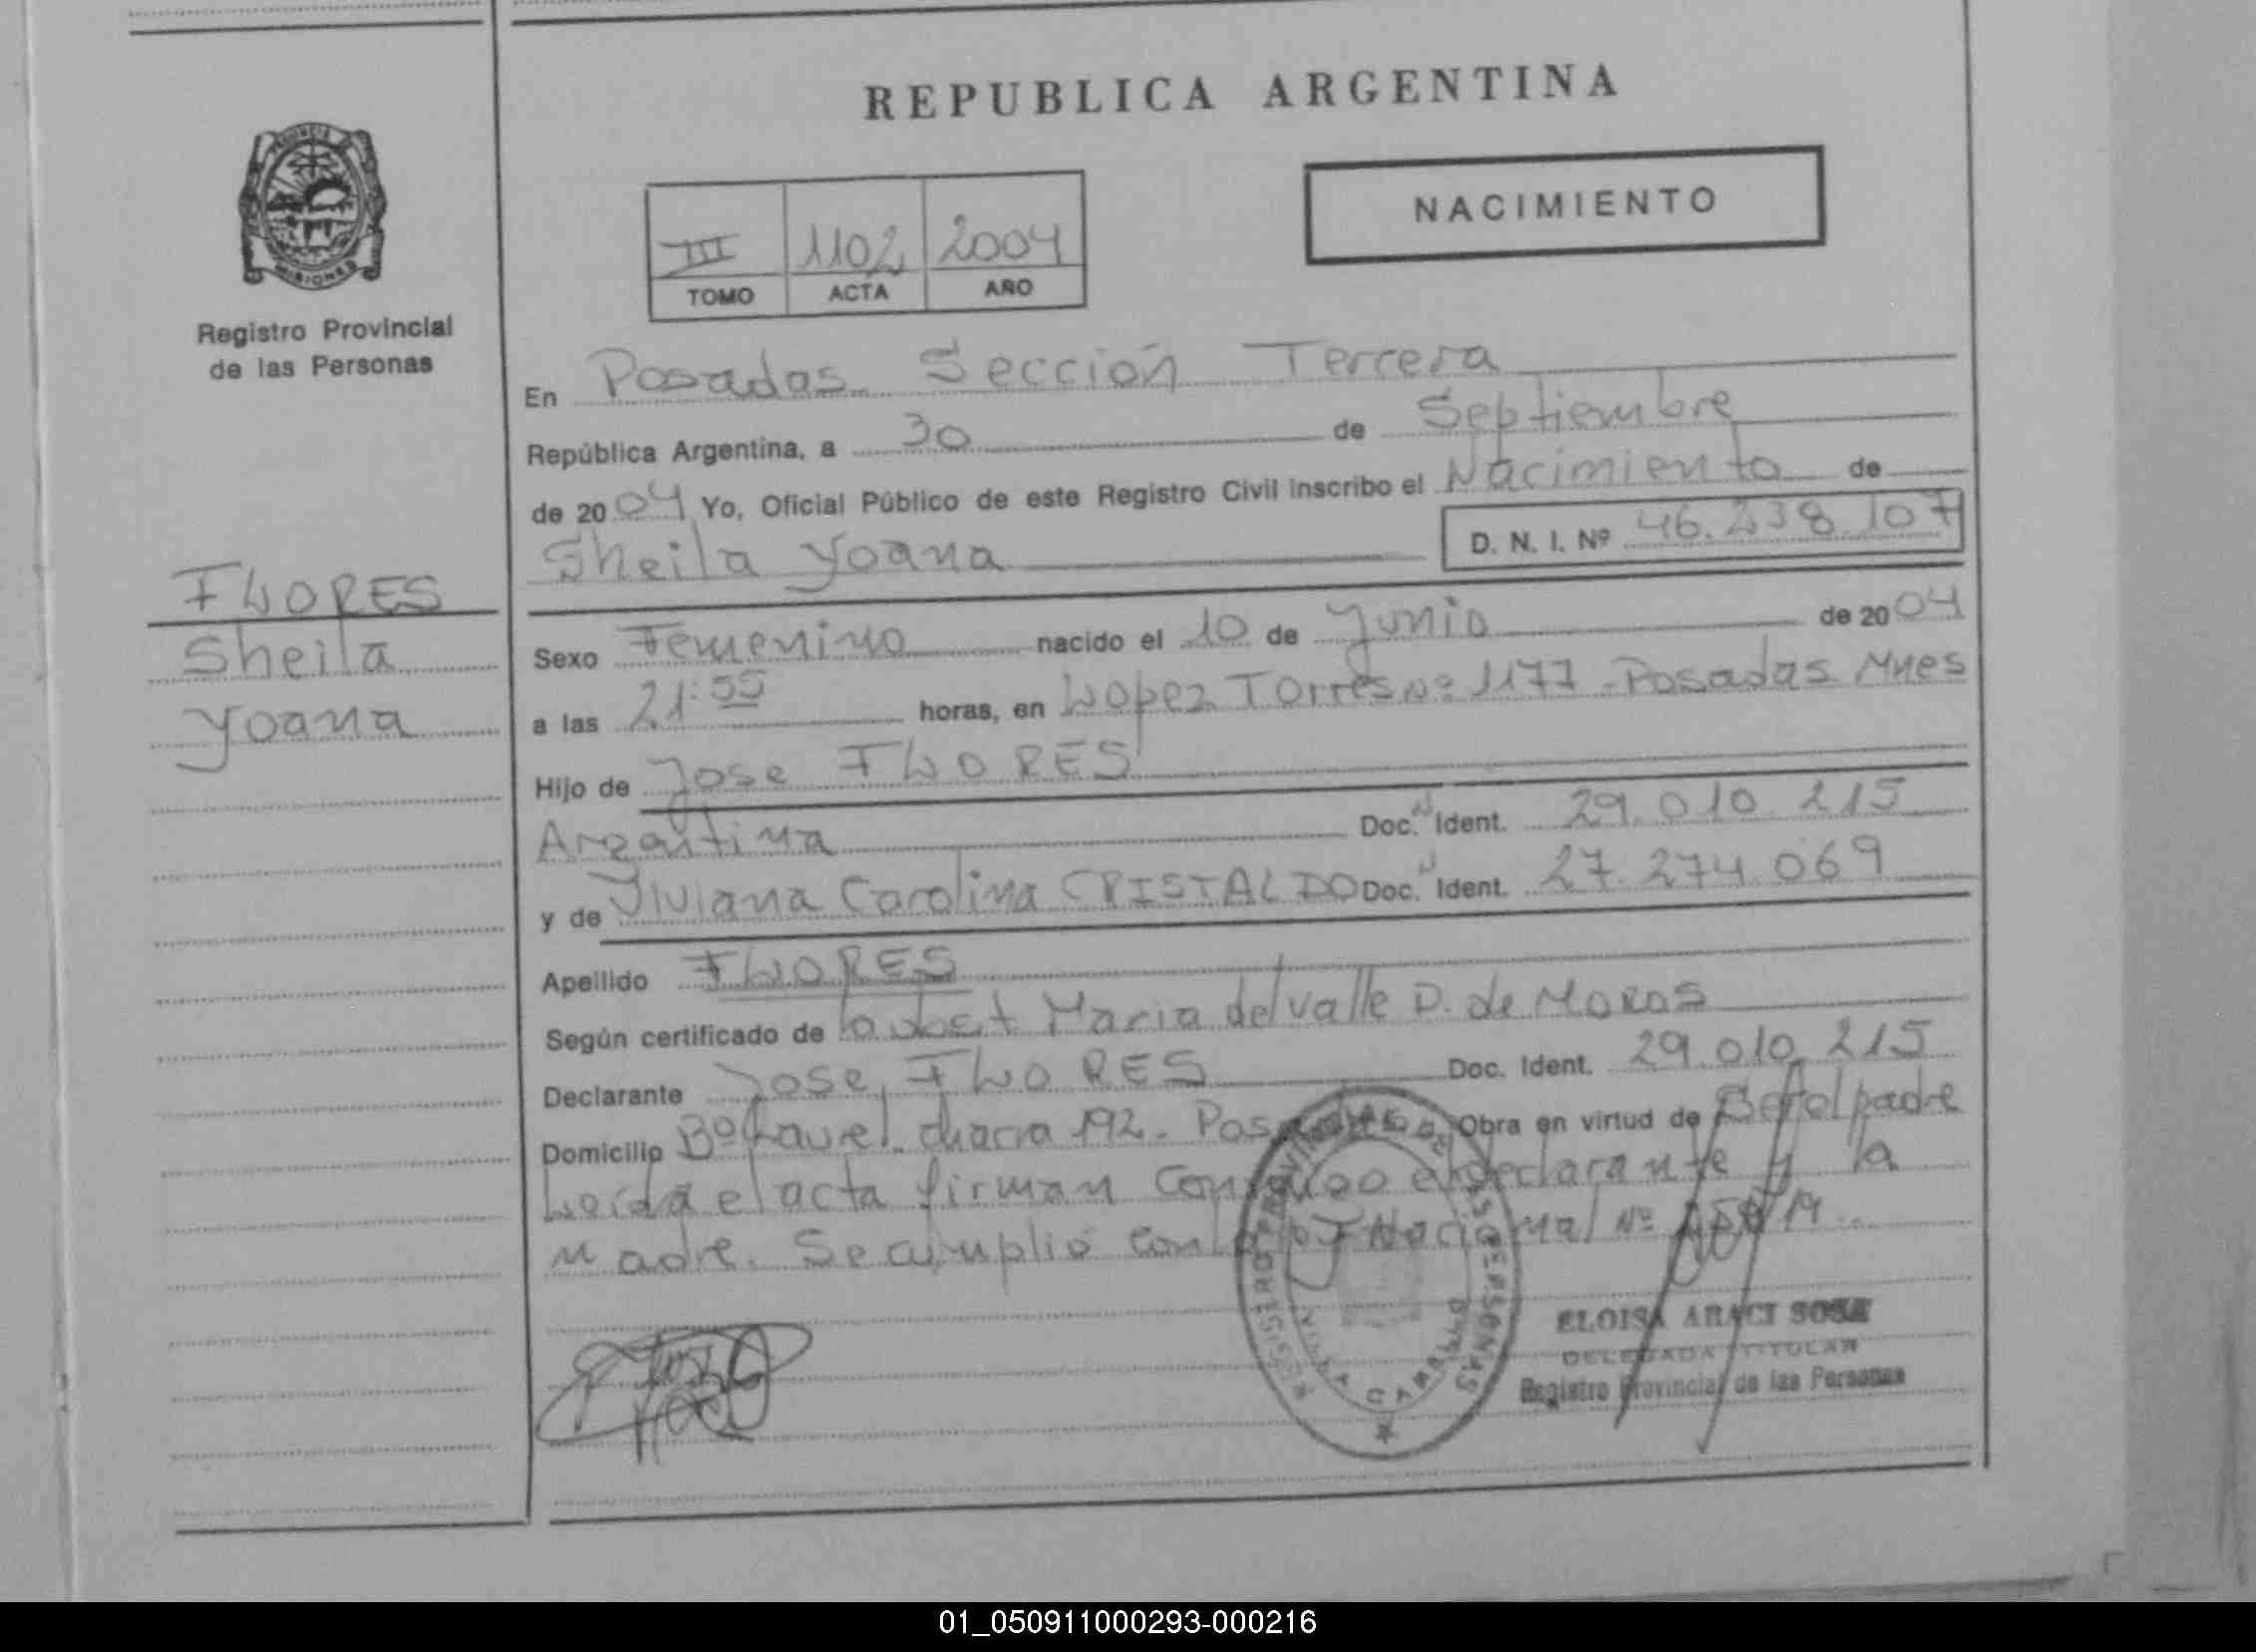 REPUBLICA ARGENTINA
NACIMIENTO
III 1102 2004
TOMO ACTA AÑO
PROVINCIA MISIONES
Registro Provincial
de las Personas
FLORES
Sheila
Yoana
En Posadas Sección Tercera
República Argentina, a 30 de Septiembre
de 2004 Yo, Oficial Público de este Registro Civil inscribo el Nacimiento de
Sheila Yoana D. N. I. Nº 46.238.107
Sexo Femenino nacido el 10 de Junio de 2004
a las 21:55 horas, en Lopez Torres Nº 1177 - Posadas Mnes
Hijo de Jose FLORES
Argentina Doc. N Ident. 29.010.215
y de Viviana Carolina CRISTALDO Doc. N Ident. 27.274.069
Apellido FLORES
Según certificado de la obst Maria del Valle D. de
Declarante Jose FLORES Doc. Ident. 29.010.215
Domicilio Bº Laurel. chacra 192. Posadas Obra en virtud de Ser el padre
Leída el acta firman conmigo el declarante y la
Madre. Se cumplió con Nacional Nº
REGISTRO PROVINCIAL DE LAS PERSONAS
VILLA CABELLO
ELOISA ARACI SOSA
DELEGADA TITULAR
Registro Provincial de las Personas
01_050911000293-000216